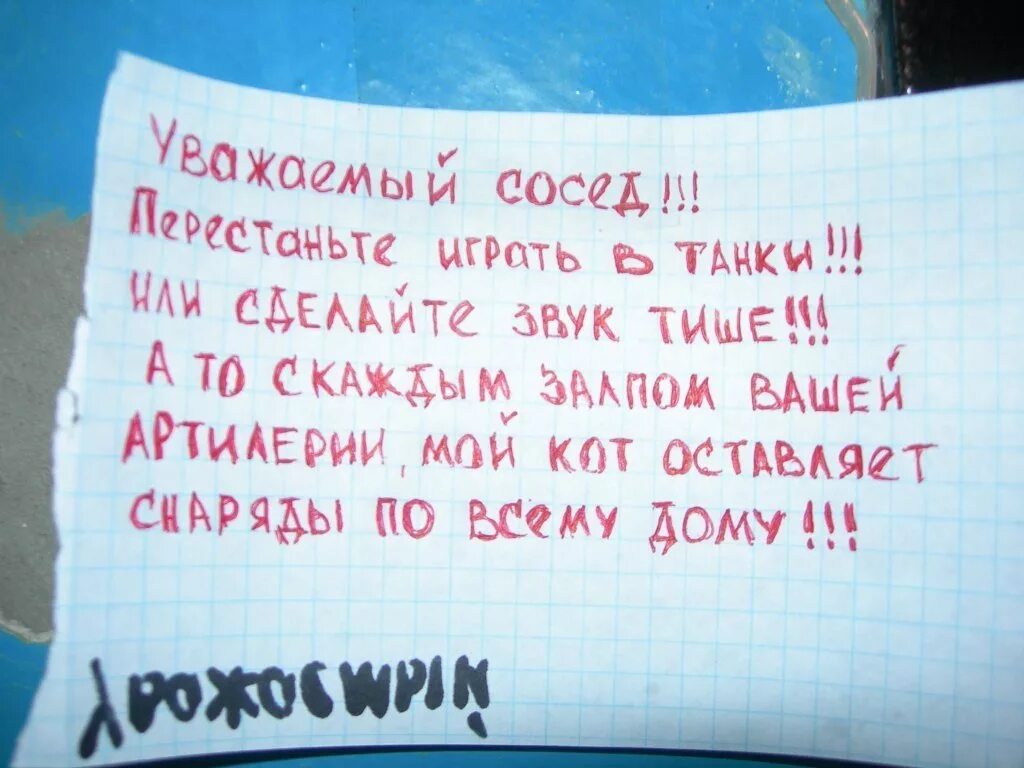 Уважаемый сосед!!!
Перестаньте играть в танки!!!
Или сделайте звук тише!!!
А то с каждым залпом вашей
артилерии, мой кот оставляет
снаряды по всему дому!!!
Уважаемый